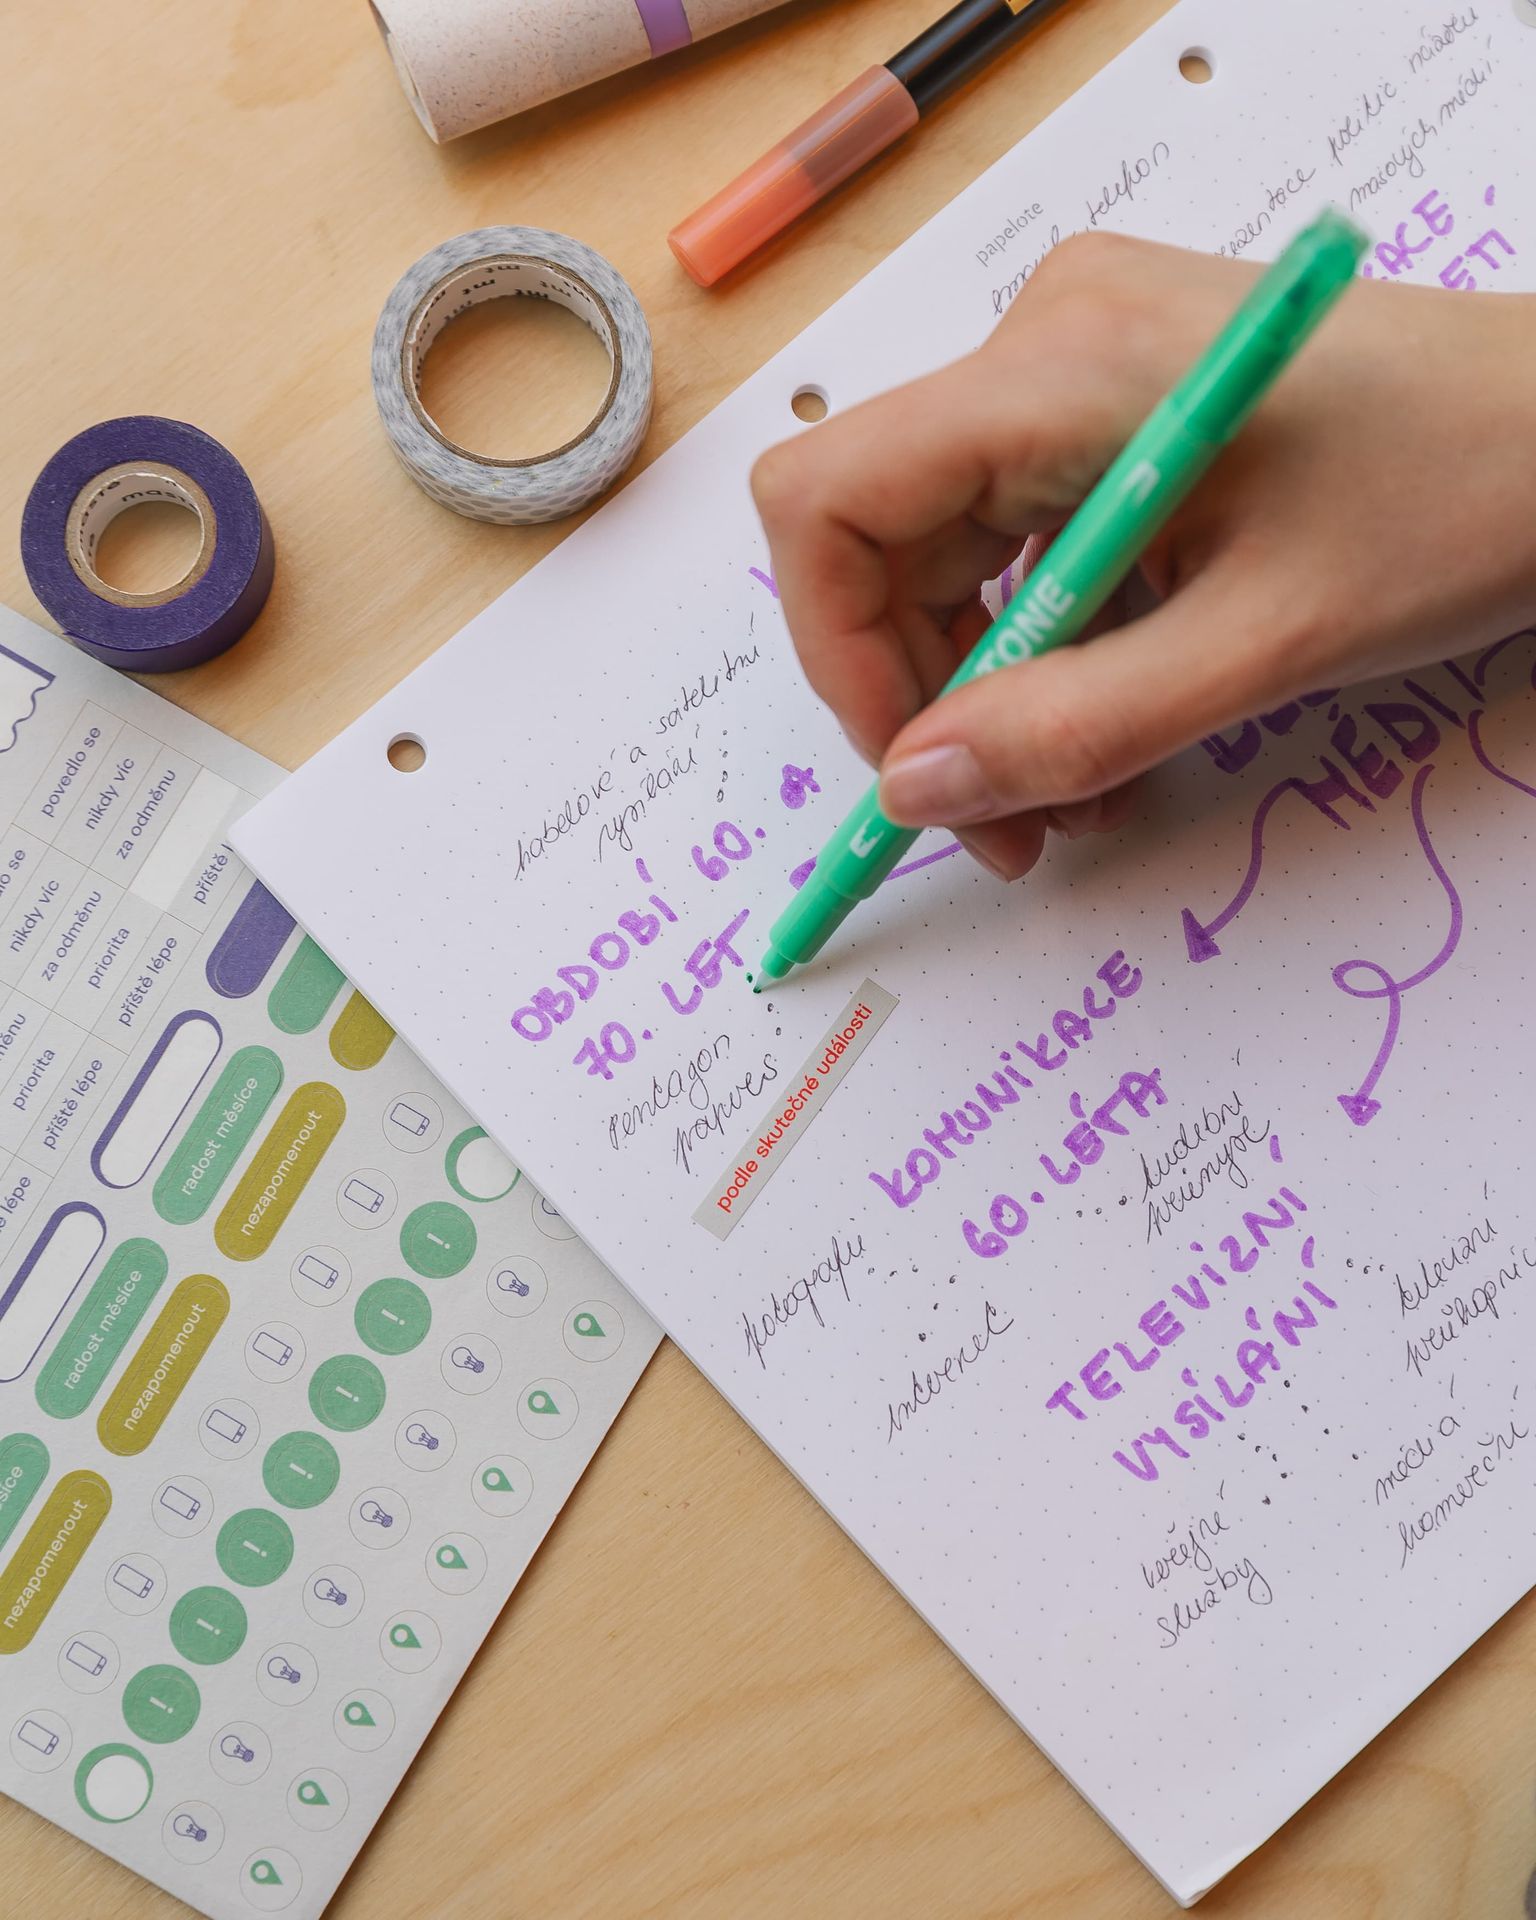 papelote
telefon
politic
masových médií
KACE
ETI
mt
mt
mt
kabelové a satelitní
vysílání
OBDOBÍ 60. A
70. LET
pentagon
papers
podle skutečné události
TONE
MÉDI
KOMUNIKACE
60. LÉTA
hudební
průmysl
fotografie
internet
TELEVIZNÍ
VYSÍLÁNÍ
televizní
média
komerční
veřejné
služby
povedlo se
nikdy víc
za odměnu
příště l
lo se
nikdy víc
za odměnu
priorita
příště lépe
měnu
priorita
příště lépe
e lépe
radost měsíce
nezapomenout
radost měsíce
nezapomenout
síce
nezapomenout